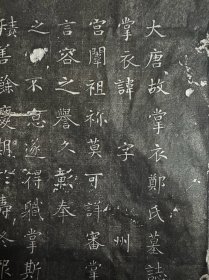 大唐故掌衣鄭氏墓誌
掌衣諱 字 州
宮闈祖祢莫可詳審掌
言容之譽久彰奉
之 不怠遂得職掌斯
積善餘慶期 壽終